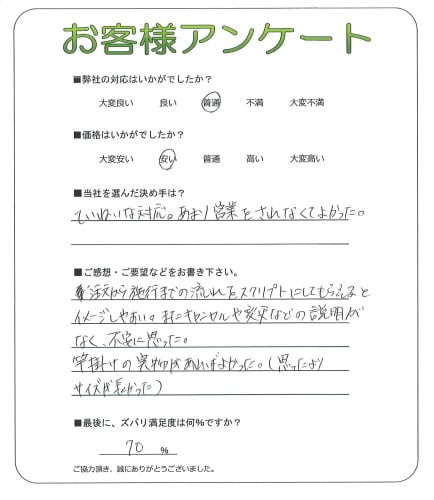 お客様アンケート
■弊社の対応はいかがでしたか？
大変良い 良い 普通 不満 大変不満
■価格はいかがでしたか？
大変安い 安い 普通 高い 大変高い
■当社を選んだ決め手は？
ていねいな対応。あまり営業をされなくてよかった。
■ご感想・ご要望などをお書き下さい。
注文から施行までの流れをスクリプトにしてもらえると
イメージしやすい。またキャンセルや変更などの説明が
なく、不安に思った。
竿掛けの実物があればよかった。（思ったより
サイズが長かった）
■最後に、ズバリ満足度は何％ですか？
70 ％
ご協力頂き、誠にありがとうございました。